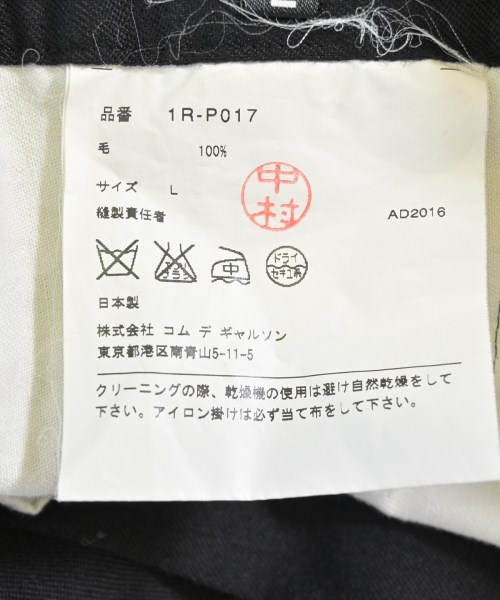 品番 1R-P017
毛 100%
サイズ L
中村
縫製責任者 AD2016
エンソ
サラシ
中
ドライ
セキユ系
日本製
株式会社 コム デ ギャルソン
東京都港区南青山5-11-5
クリーニングの際、乾燥機の使用は避け自然乾燥をして
下さい。アイロン掛けは必ず当て布をして下さい。